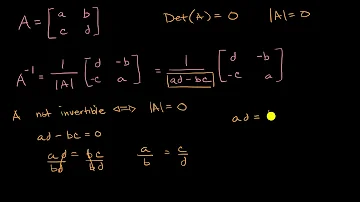 A = [a b; c d] Det(A) = 0 |A| = 0
A⁻¹ = 1/|A| [d -b; -c a] = 1/(ad-bc) [d -b; -c a]
A not invertible ⟺ |A| = 0
ad - bc = 0 ad =
ad/bd = bc/bd a/b = c/d